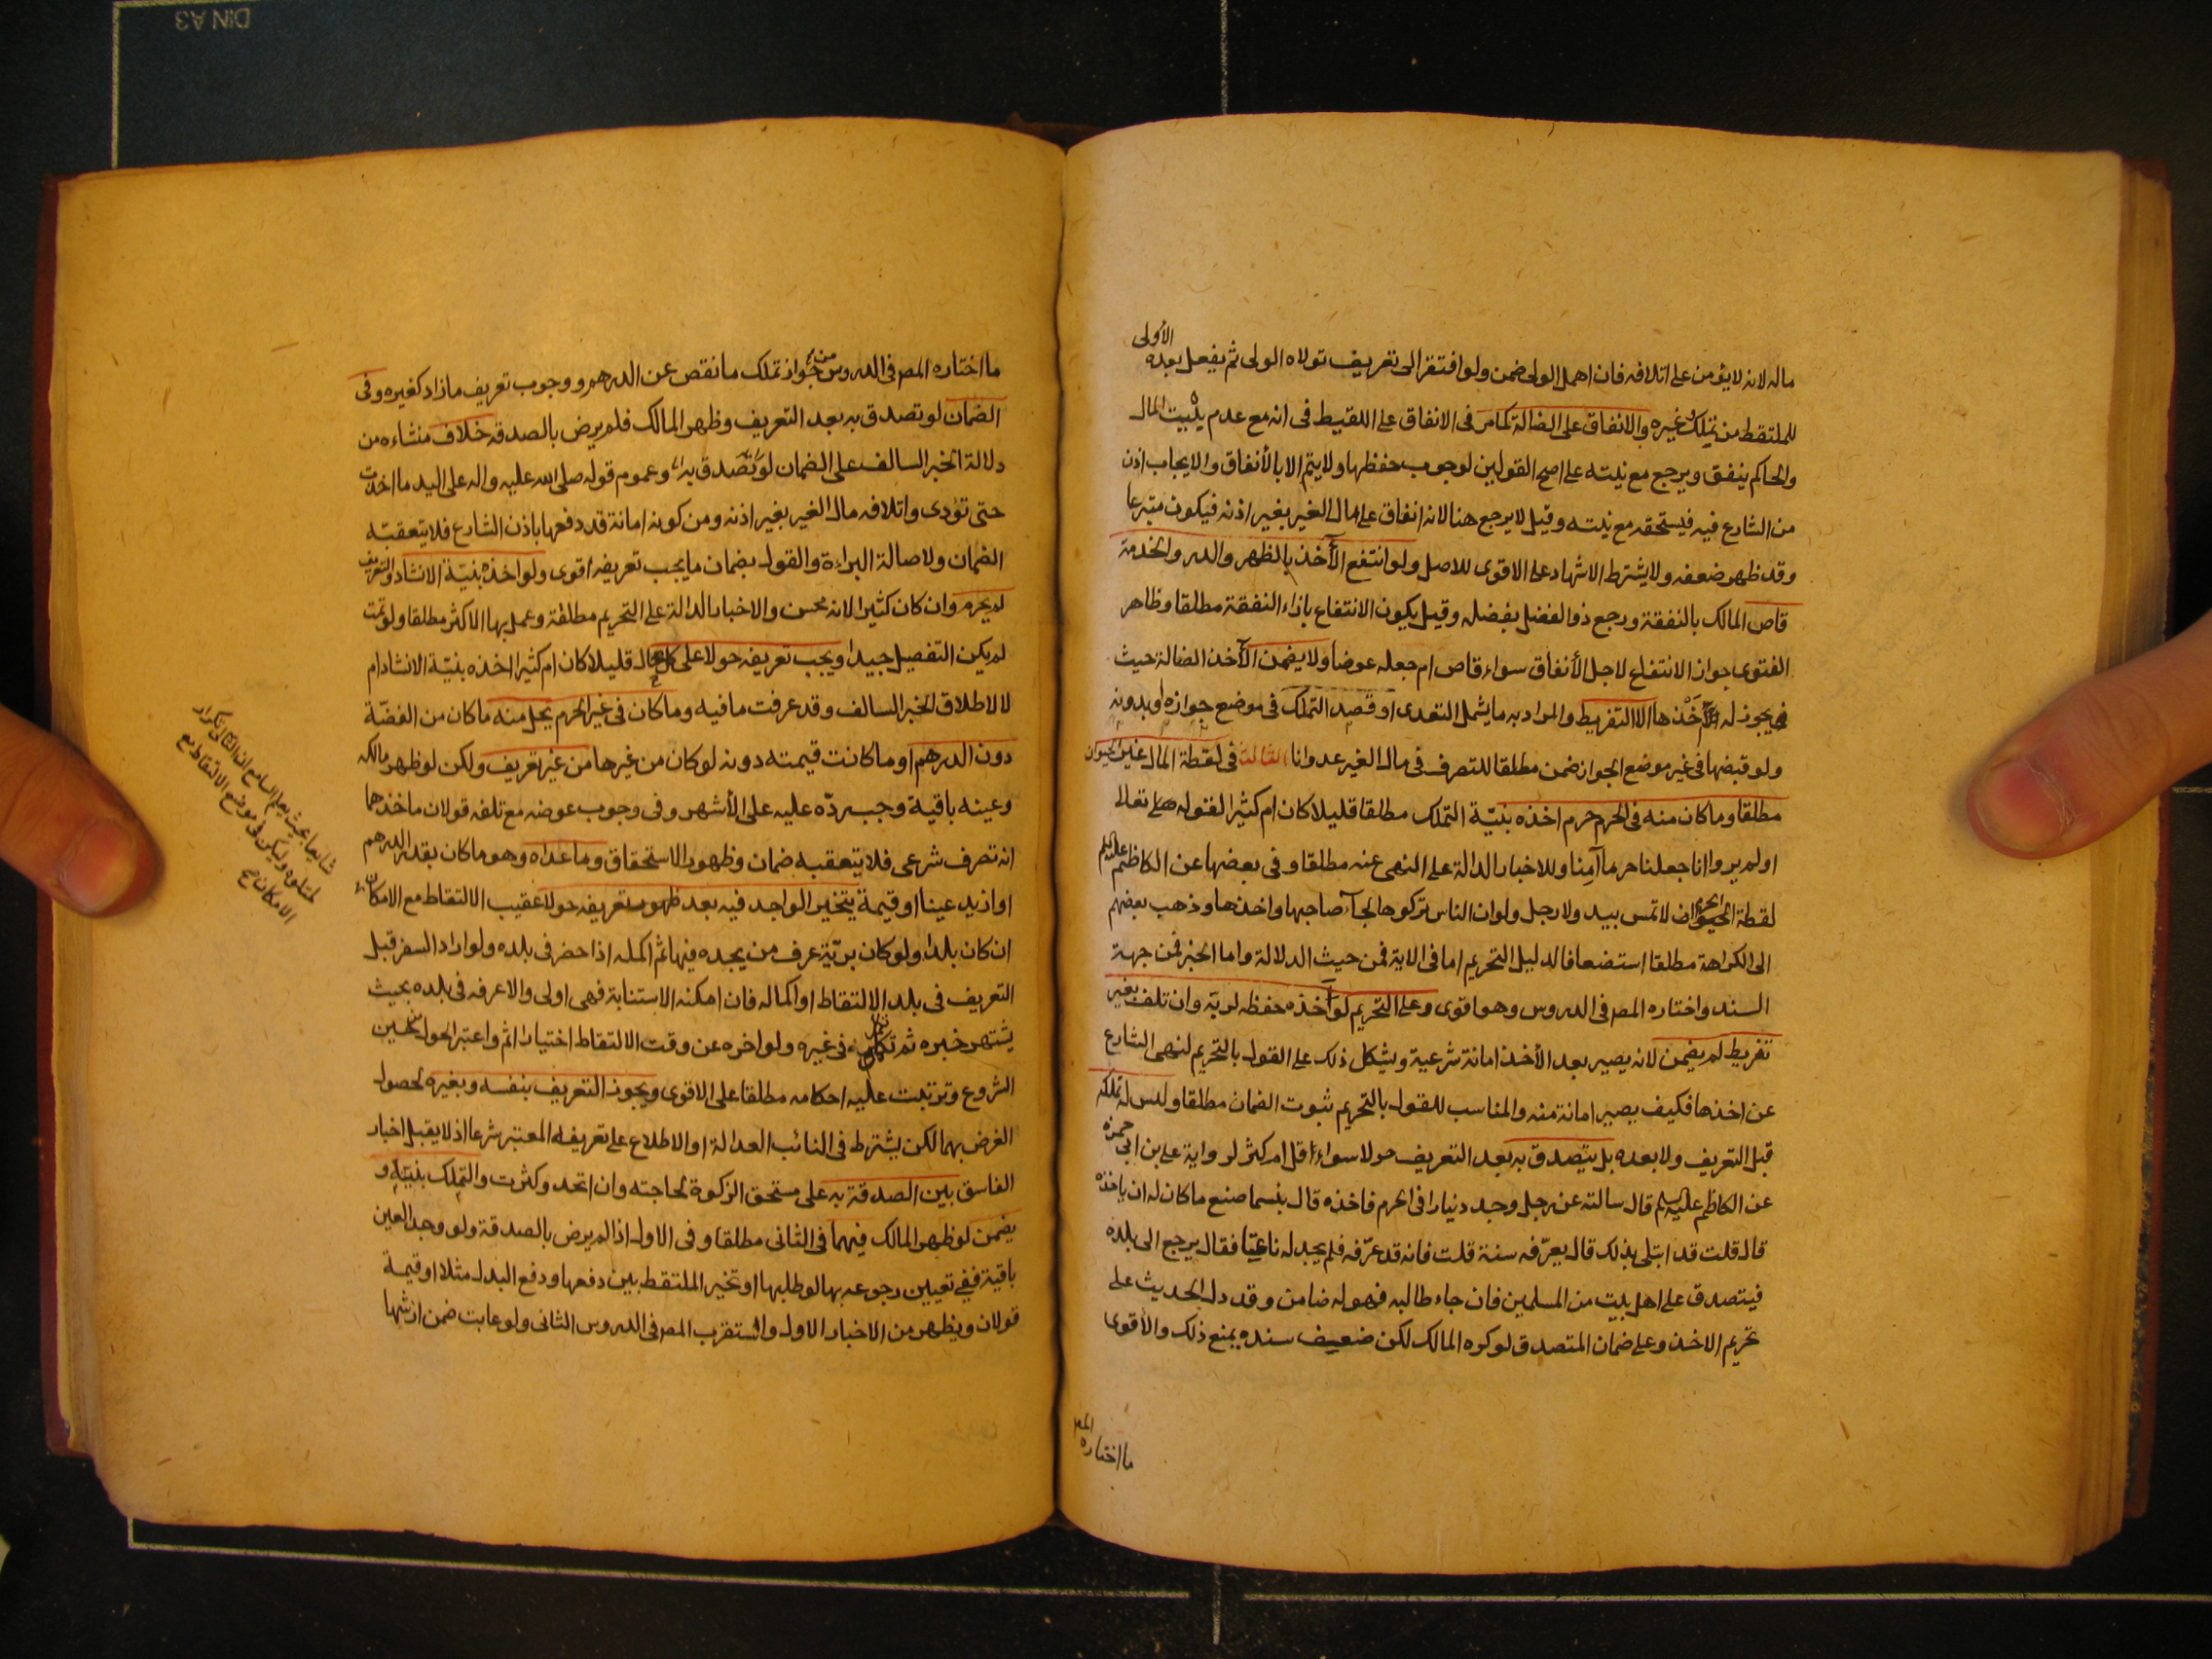 ماله لانه لايؤمن على اتلافه فان اهمل الولى ضمن ولو افتقر الى تعريف تولاه الولى ثم يفعل بعده الأولى
للملتقط من تملك وغيره والانفاق على الضالة كما مر فى الانفاق على اللقيط فى انه مع عدم بيت المال
والحاكم ينفق ويرجع مع نيته على اصح القولين لوجوب حفظها ولا يتم الا بالأنفاق والايجاب اذن
من الشارع فيه فيستحقه مع نيته وقيل لا يرجع هنا لانه انفاق على مال الغير بغير اذنه فيكون متبرعا
وقد ظهر ضعفه ولا يشترط الاشهاد على الاقوى للاصل ولو انتفع الآخذ بالظهر والدر والخدمة
قاص المالك بالنفقة ورجع ذو الفضل بفضله وقيل يكون الانتفاع بازاء النفقة مطلقا وظاهر
الفتوى جواز الانتفاع لاجل الأنفاق سواء قاص ام جعله عوضا ولا يضمن الآخذ الضالة حيث
يجوز له أخذها الا بالتفريط والمراد به ما يشمل التعدى او قصد التملك فى موضع جوازه او بدونه
ولو قبضها فى غير موضع الجواز ضمن مطلقا للتصرف فى مال الغير عدوانا الثالث فى لقطة المال غير الحيوان
مطلقا وما كان منه فى الحرم حرم اخذه بنيّة التملك مطلقا قليلا كان ام كثيرا لقوله تعالى
اولم يروا انا جعلنا حرما آمنا وللاخبار الدالة على النهى عنه مطلقا وفى بعضها عن الكاظم عليه السلم
لقطة الحرم لا تمس بيد ولا رجل ولو ان الناس تركوها لجآء صاحبها واخذها وذهب بعضهم
الى الكراهة مطلقا استضعافا لدليل التحريم اما فى الاية فمن حيث الدلالة واما الخبر فمن جهة
السند واختاره المص فى الدروس وهو اقوى وعلى التحريم لو أخذه حفظه لربّه وان تلف بغير
تفريط لم يضمن لانه يصير بعد الأخذ امانة شرعية ويشكل ذلك على القول بالتحريم لنهى الشارع
عن اخذها فكيف يصير امانة منه والمناسب للقول بالتحريم ثبوت الضمان مطلقا وليس له تملكه
قبل التعريف ولا بعده بل يتصدق به بعد التعريف حولا سواء قل ام كثر لرواية على بن ابى حمزه
عن الكاظم عليه السلم قال سالته عن رجل وجد دنيارا فى الحرم فاخذه قال بئسما صنع ما كان له ان ياخذه
قال قلت قد ابتلى بذلك قال يعرّفه سنة قلت فانه قد عرّفه فلم يجد له باغيا فقال يرجع الى بلده
فيتصدق على اهل بيت من المسلمين فان جاء طالبه فهو له ضامن وقد دل الحديث على
تحريم الاخذ وعلى ضمان المتصدق لو كره المالك لكن ضعيف سنده يمنع ذلك والأقوى
ما اختاره المص
ما اختاره المص فى الدروس من جواز تملك ما نقص عن الدرهم ووجوب تعريف ما زاد كغيره وفى
الضمان لو تصدق به بعد التعريف وظهر المالك فلم يرض بالصدقة خلاف منشاءه من
دلالة الخبر السالف على الضمان لو تصدق به وعموم قوله صلى الله عليه واله على اليد ما اخذت
حتى تؤدى واتلافه مال الغير بغير اذنه ومن كونه امانة قد دفعها باذن الشارع فلا يتعقبه
الضمان ولاصالة البراءة والقول بضمان ما يجب تعريفه اقوى ولو اخذه بنيّة الانشاد والتعريف
لم يحرم وان كان كثيرا لانه محسن والاخبار الدالة على التحريم مطلقة وعمل بها الاكثر مطلقا ولو تمت
لم يكن التفصيل جيدا ويجب تعريفه حولا على كل حال قليلا كان ام كثيرا اخذه بنيّة الانشاد ام
لا لاطلاق الخبر السالف وقد عرفت ما فيه وما كان فى غير الحرم يحل منه ما كان من الفضّة
دون الدرهم او ما كانت قيمته دونه لو كان من غيرها من غير تعريف ولكن لو ظهر مالكه
وعينه باقية وجب ردّه عليه على الأشهر وفى وجوب عوضه مع تلفه قولان ماخذهما
انه تصرف شرعى فلا يتعقبه ضمان وظهور الاستحقاق وما عداه وهو ما كان بقدر الدرهم
او ازيد عينا او قيمة يتخير الواجد فيه بعد تعريفه حولا عقيب الالتقاط مع الامكان
ان كان بلدا ولو كان بريّة عرف من يجده فيها ثم اكمله اذا حضر فى بلده ولو اراد السفر قبل
التعريف فى بلد الالتقاط او اكماله فان امكنه الاستنابة فهى اولى والا عرفه فى بلده بحيث
يشتهر خبره ثم يكمله فى غيره ولو اخره عن وقت الالتقاط اختيارا اثم واعتبر الحول من حين
الشروع وترتبت عليه احكامه مطلقا على الاقوى ويجوز التعريف بنفسه وبغيره لحصول
الغرض بهما لكن يشترط فى النائب العدالة او الاطلاع على تعريفه المعتبر شرعا اذ لا يقبل اخبار
الفاسق بين الصدقة به على مستحق الزكوة لحاجته وان اتحد وكثرت والتملك بنيّته و
يضمن لو ظهر المالك فيهما فى الثانى مطلقا وفى الاول اذا لم يرض بالصدقة ولو وجد العين
باقية ففى تعيين رجوعه بها لو طلبها او تخير الملتقط بين دفعها ودفع البدل مثلا او قيمة
قولان ويظهر من الاخبار الاول واستقرب المص فى الدروس الثانى ولو عابت ضمن ارشها
شايعا بحيث يعلم السامع ان التالى تكرار
لمتلوه وليكن فى موضع الالتقاط مع
الامكان